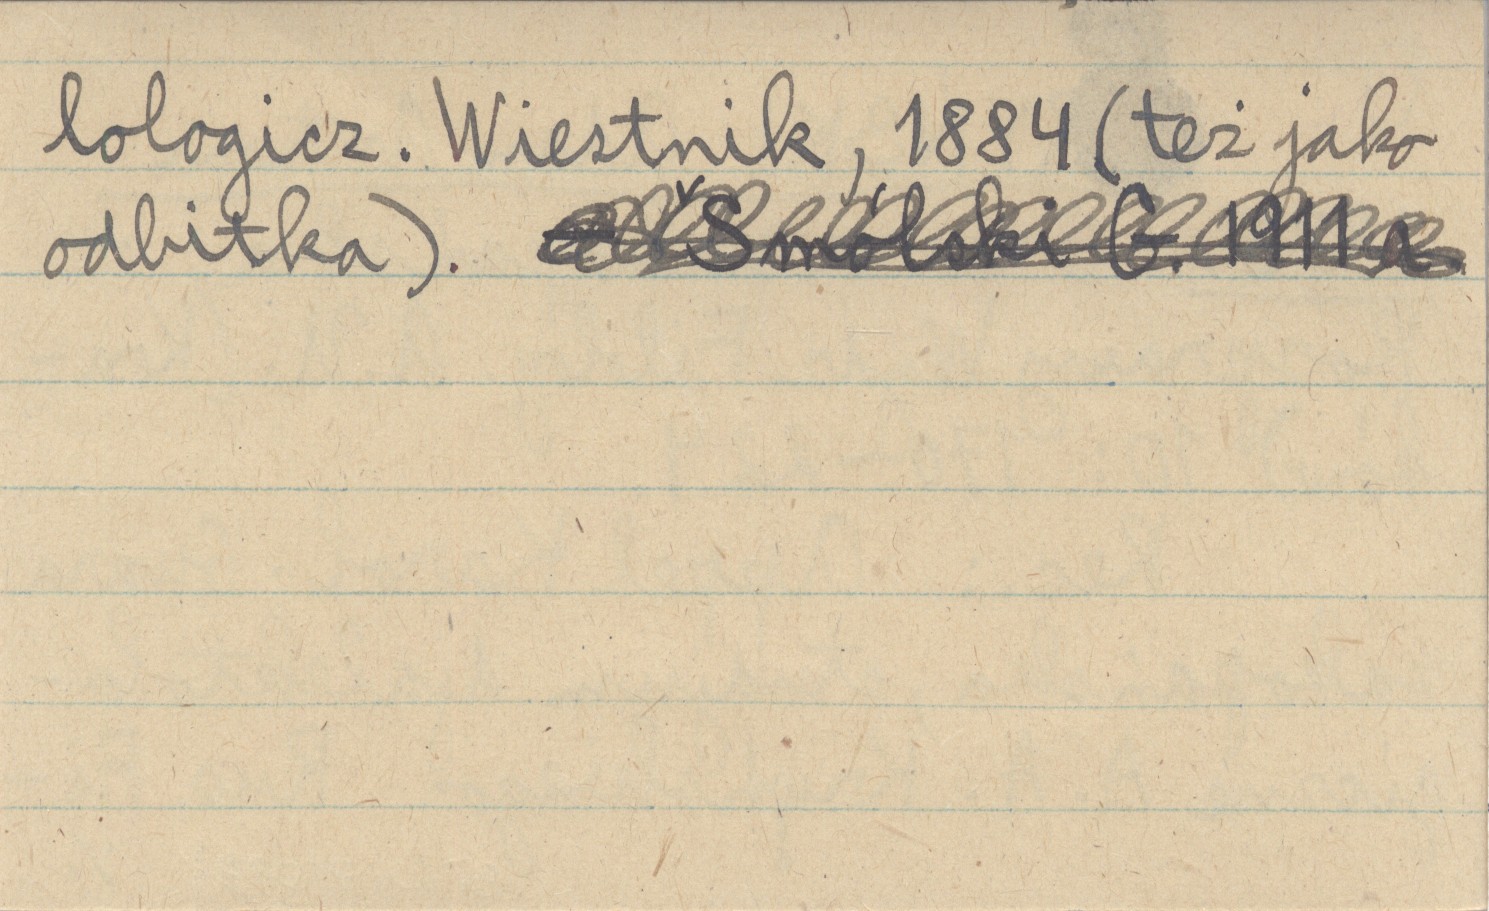 lologicz. Wiestnik, 1884 (też jako
odbitka). Šmólski G. 1911 a